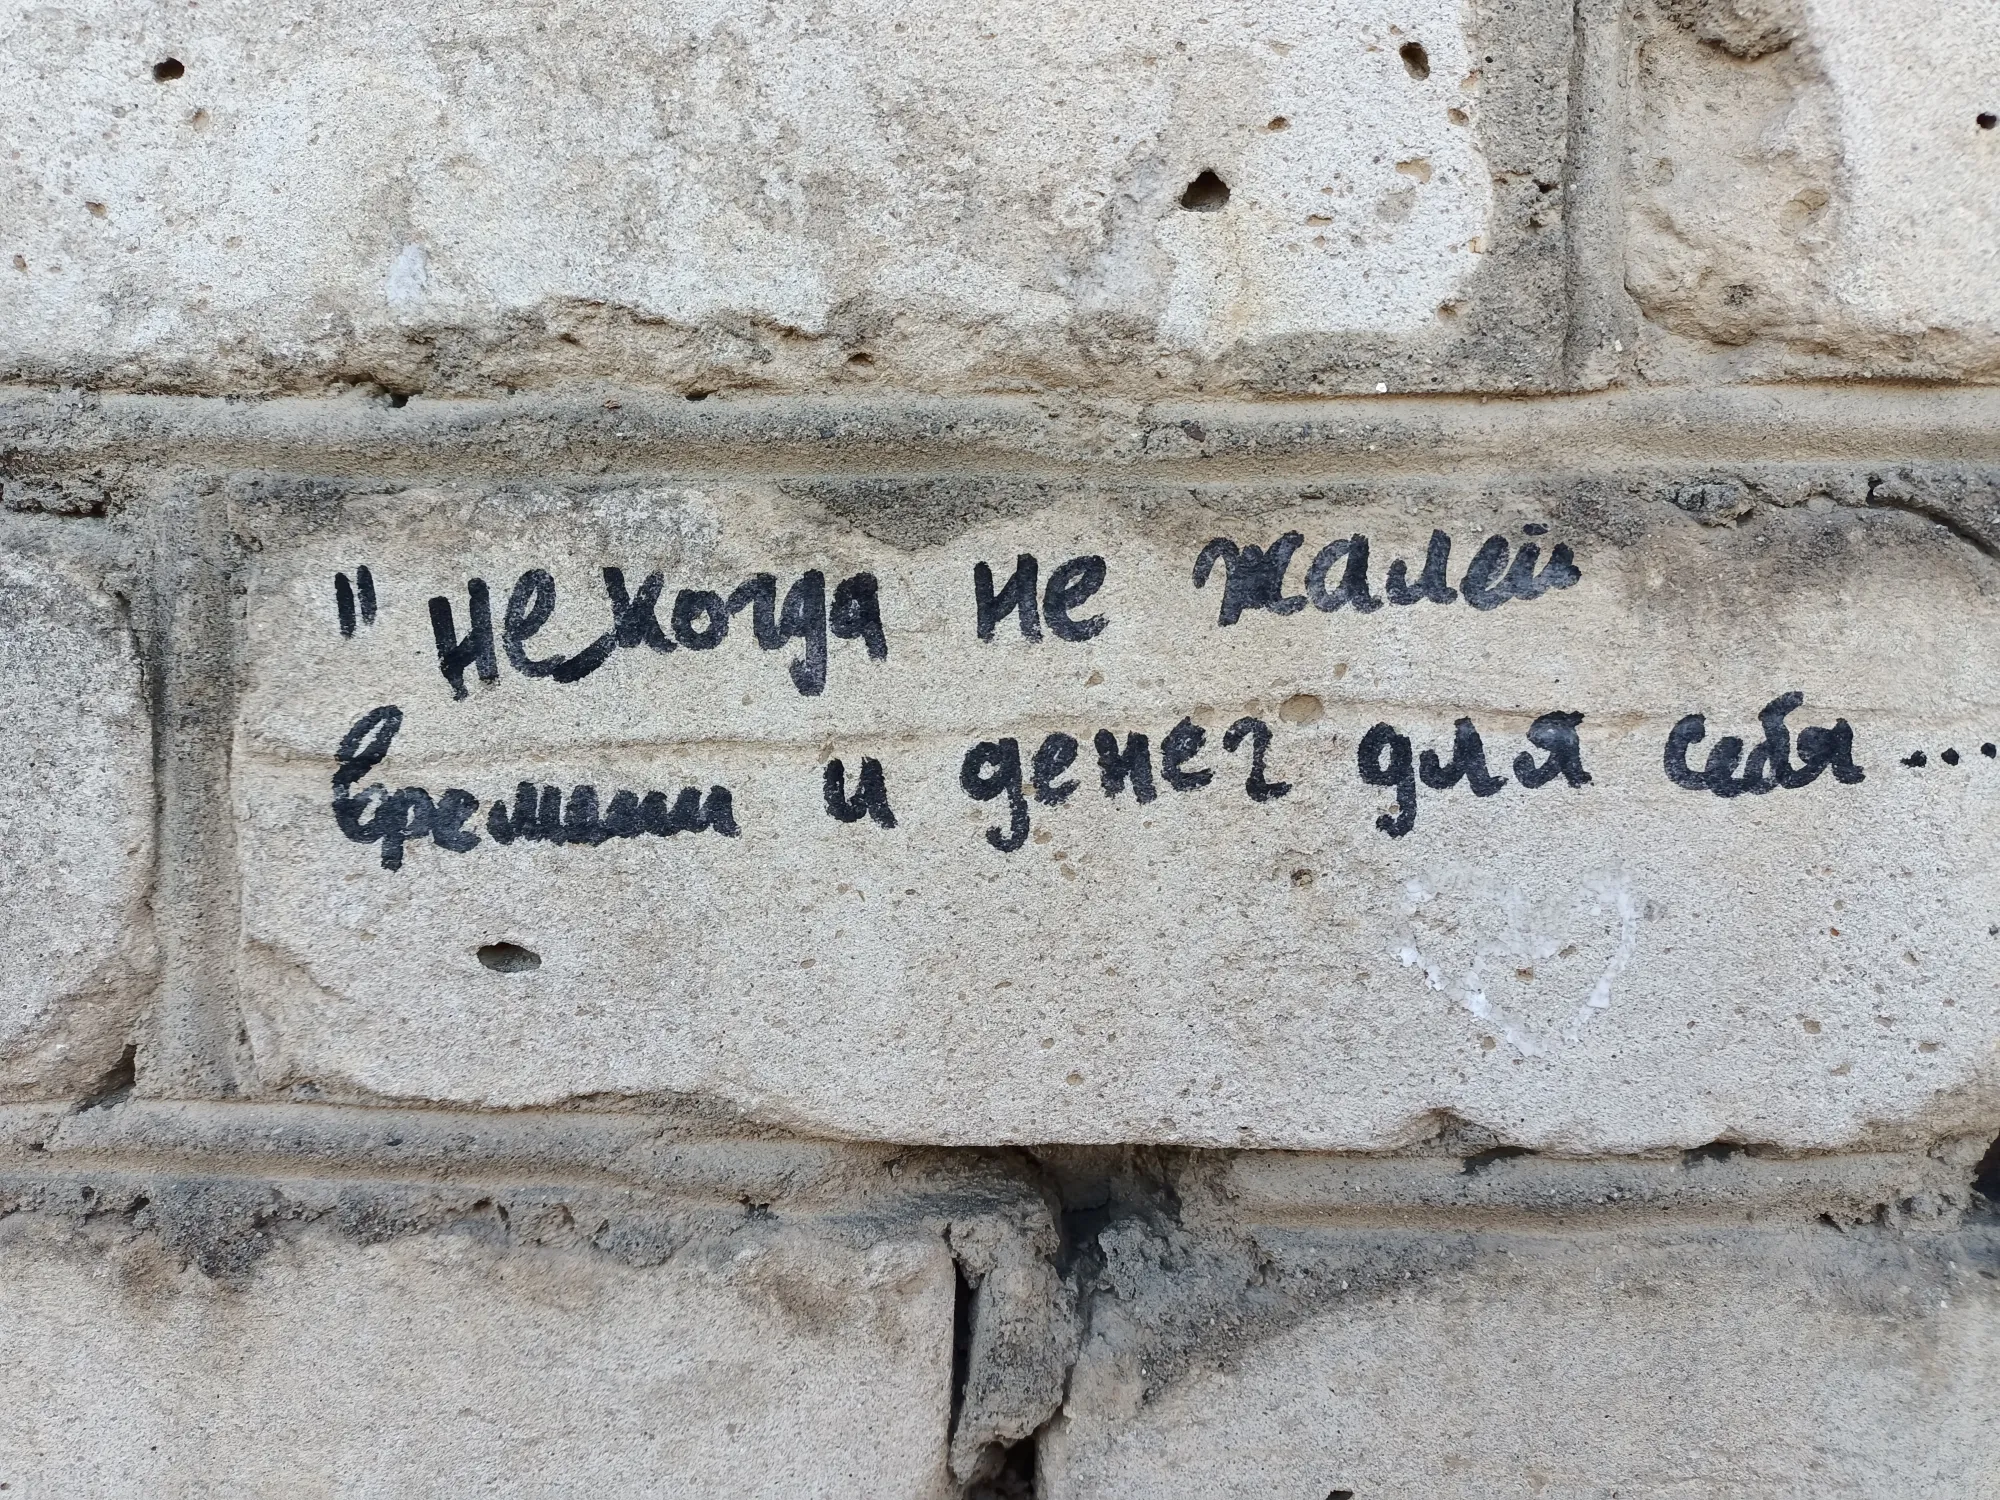 "Некогда не жалей
времини и денег для себя...